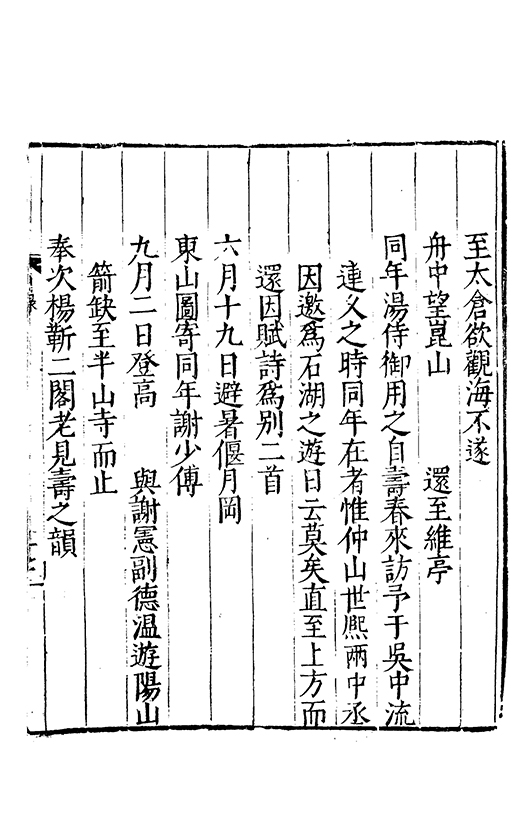 至太倉欲觀海不遂
舟中望崑山　還至維亭
同年湯侍御用之自壽春來訪予于吳中流
連乂之時同年在者惟仲山世熈兩中丞
因邀爲石湖之遊日云莫矣直至上方而
還因賦詩爲別二首
六月十九日避暑偃月岡
東山圖寄同年謝少傅
九月二日登高　與謝憲副德温遊陽山
箭缺至半山寺而止
奉次楊靳二閣老見壽之韻